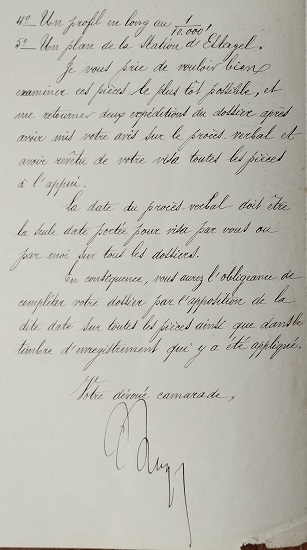 4º Un profil en long au 1/10.000!
5º Un plan de la Station d'Estagel.
Je vous prie de vouloir bien
examiner ces pièces le plus tôt possible, et
me retourner deux expéditions du dossier après
avoir mis votre avis sur le procès verbal et
avoir revêtu de votre visa toutes les pièces
à l'appui.
La date du procès-verbal doit être
la seule date portée pour visa par vous ou
par moi sur tous les dossiers.
En conséquence, vous aurez l'obligeance de
compléter votre dossier par l'apposition de la
dite date sur toutes les pièces ainsi que dans le
timbre d'enregistrement qui y a été appliqué.
Votre dévoué camarade,